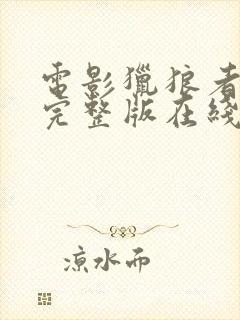 電影獵狼者
完整版在綫
涼水而